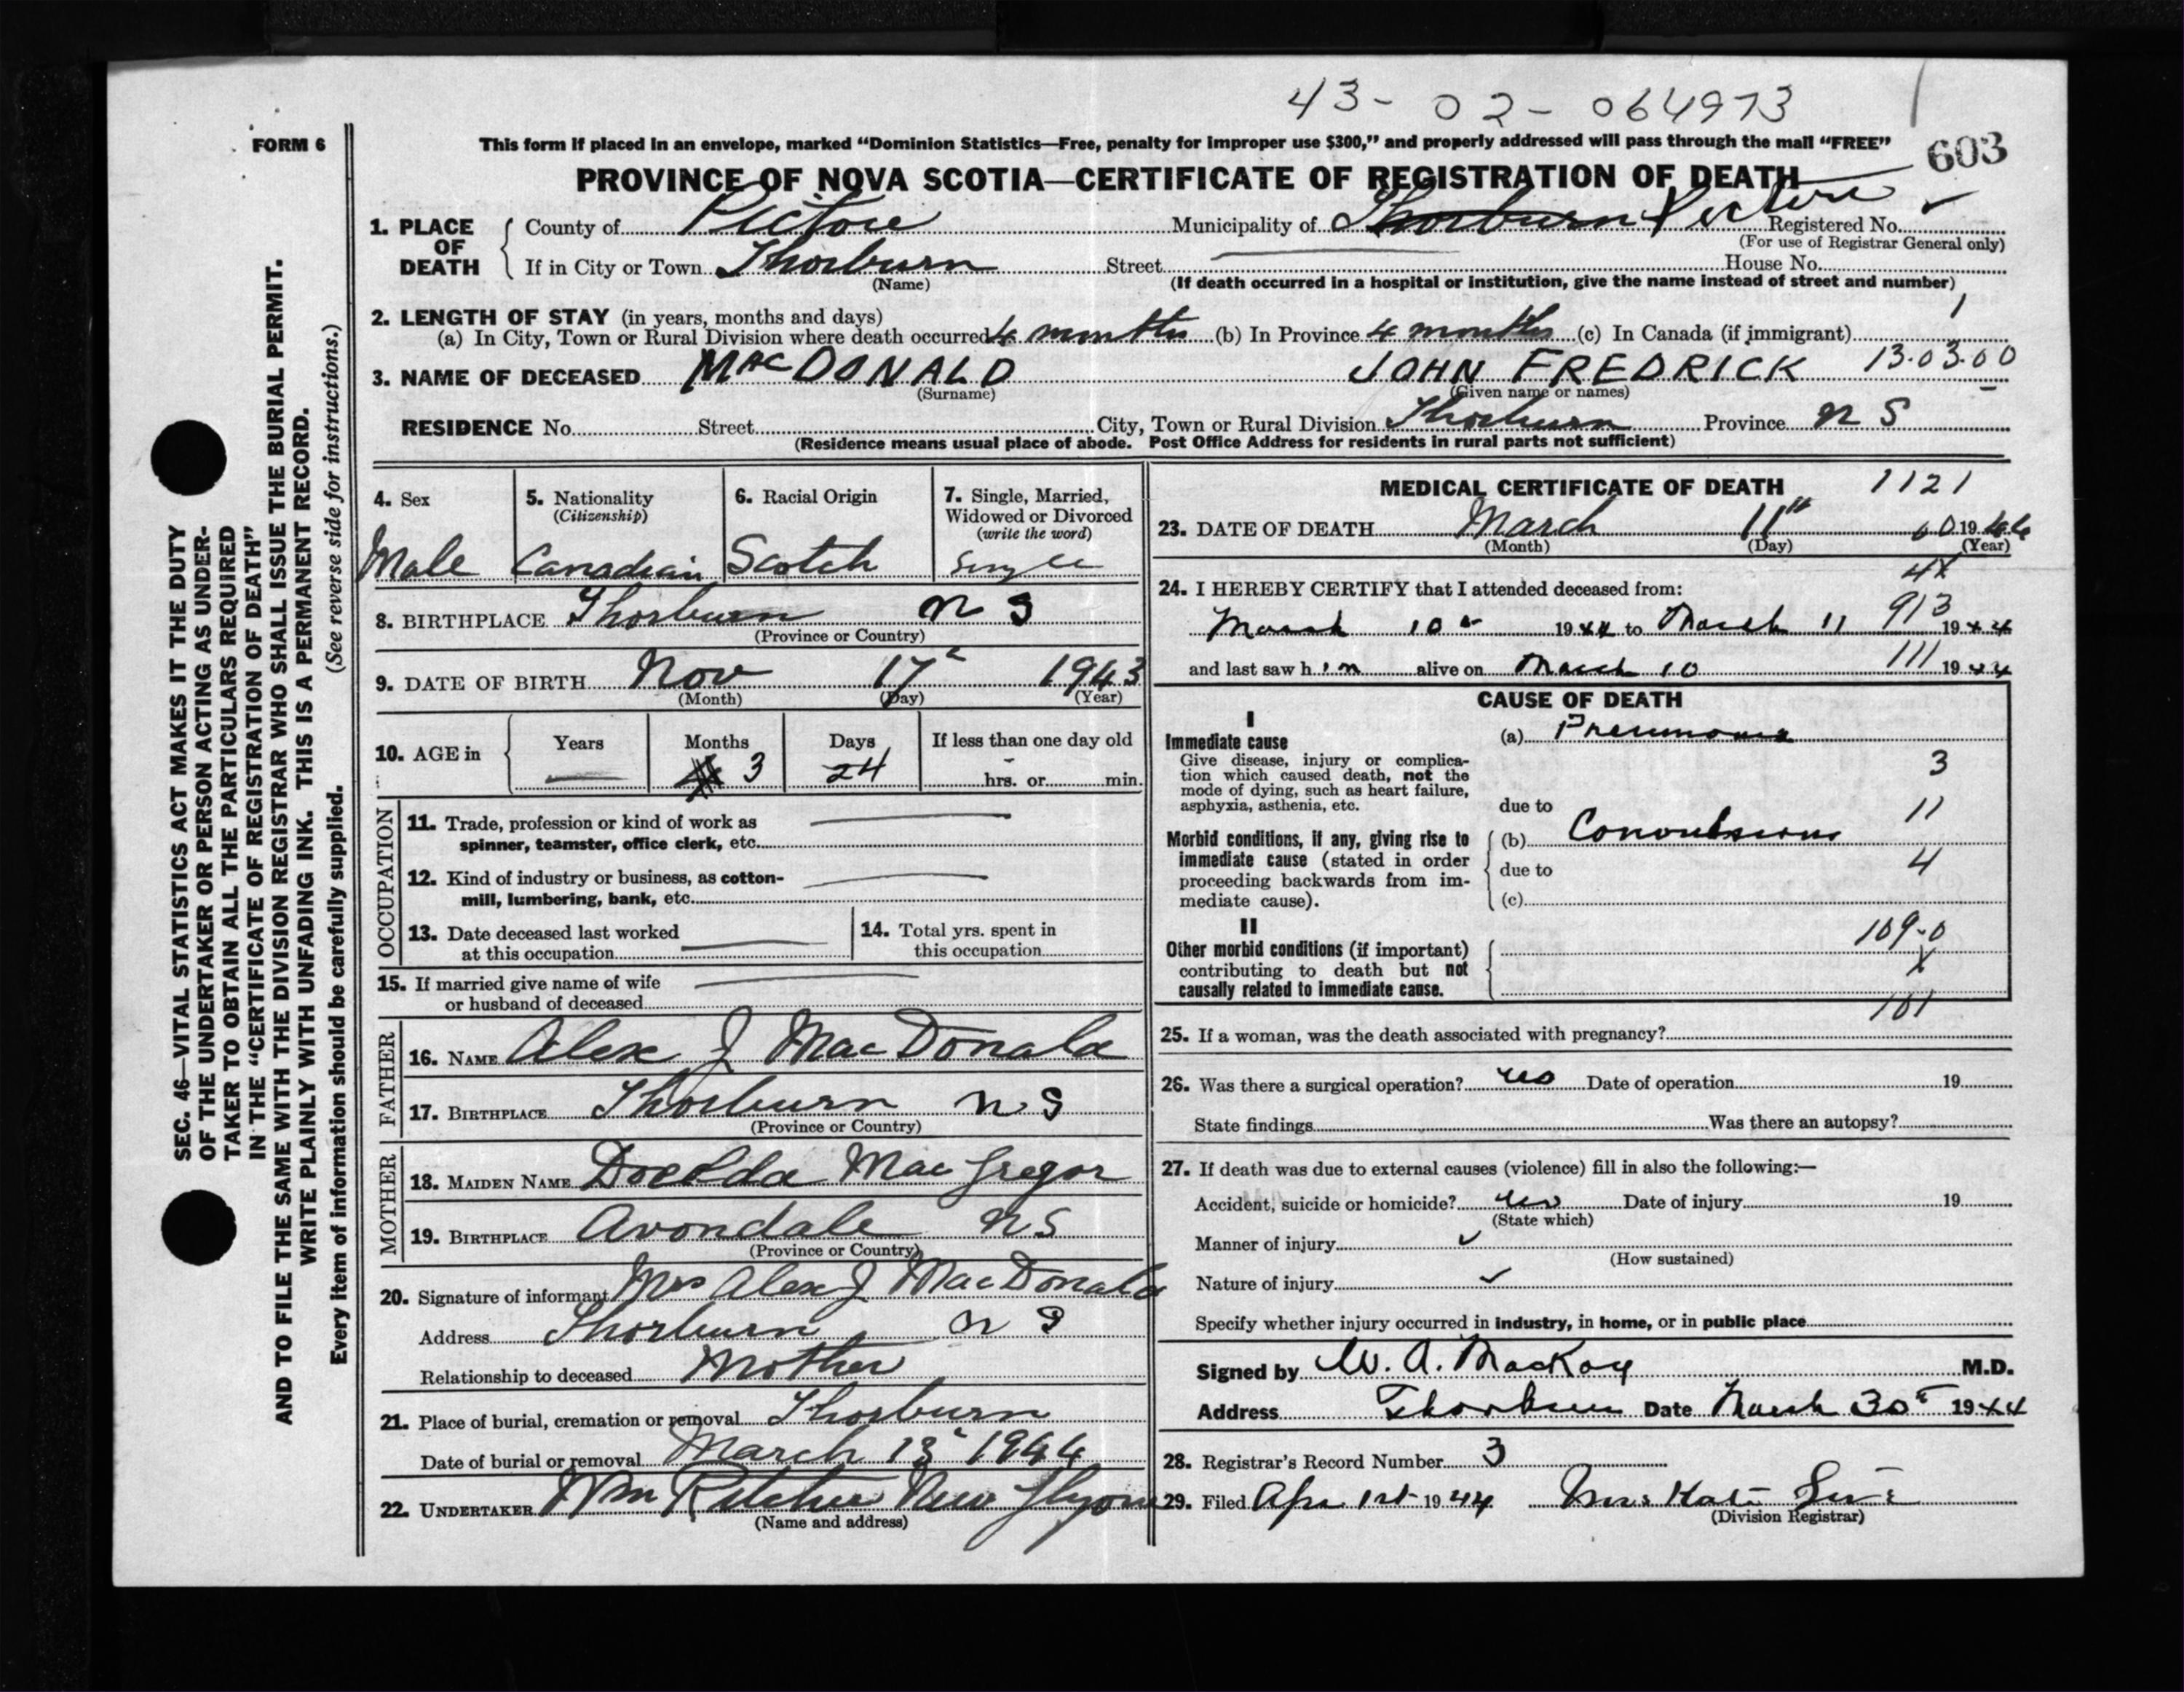 43-02-064973
FORM 6
This form if placed in an envelope, marked "Dominion Statistics—Free, penalty for improper use $300," and properly addressed will pass through the mail "FREE"
603
PROVINCE OF NOVA SCOTIA—CERTIFICATE OF REGISTRATION OF DEATH
1. PLACE OF DEATH
County of Pictou Municipality of Thorburn Pictou Registered No.
(For use of Registrar General only)
If in City or Town Thorburn Street House No.
(Name) (If death occurred in a hospital or institution, give the name instead of street and number)
2. LENGTH OF STAY (in years, months and days) 1
(a) In City, Town or Rural Division where death occurred 4 months (b) In Province 4 months (c) In Canada (if immigrant)
3. NAME OF DECEASED MacDONALD JOHN FREDRICK 13.03.00
(Surname) (Given name or names)
RESIDENCE No. Street City, Town or Rural Division Thorburn Province N S
(Residence means usual place of abode. Post Office Address for residents in rural parts not sufficient)
4. Sex
Male
5. Nationality
(Citizenship)
Canadian
6. Racial Origin
Scotch
7. Single, Married,
Widowed or Divorced
(write the word)
Single
8. BIRTHPLACE Thorburn N S
(Province or Country)
9. DATE OF BIRTH Nov 17 1943
(Month) (Day) (Year)
10. AGE in
Years Months Days If less than one day old
3 24 hrs. or min.
OCCUPATION
11. Trade, profession or kind of work as
spinner, teamster, office clerk, etc.
12. Kind of industry or business, as cotton-
mill, lumbering, bank, etc.
13. Date deceased last worked
at this occupation
14. Total yrs. spent in
this occupation
15. If married give name of wife
or husband of deceased
FATHER
16. NAME Alex J MacDonald
17. BIRTHPLACE Thorburn N S
(Province or Country)
MOTHER
18. MAIDEN NAME MacGregor
19. BIRTHPLACE Avondale N S
(Province or Country)
20. Signature of informant Mrs Alex J MacDonald
Address Thorburn N S
Relationship to deceased Mother
21. Place of burial, cremation or removal Thorburn
Date of burial or removal March 13 1944
22. UNDERTAKER Wm New
(Name and address)
MEDICAL CERTIFICATE OF DEATH 1121
23. DATE OF DEATH March 11" 60 1944
(Month) (Day) (Year)
24. I HEREBY CERTIFY that I attended deceased from: 4X
March 10 1944 to March 11 913 1944
and last saw him alive on March 10 111 1944
CAUSE OF DEATH
I
Immediate cause
Give disease, injury or complica-
tion which caused death, not the
mode of dying, such as heart failure,
asphyxia, asthenia, etc.
(a) Pneumonia
3
due to
11
Morbid conditions, if any, giving rise to
immediate cause (stated in order
proceeding backwards from im-
mediate cause).
(b) Convulsions
due to 4
(c)
II
109-0
Other morbid conditions (if important)
contributing to death but not
causally related to immediate cause.
X
101
25. If a woman, was the death associated with pregnancy?
26. Was there a surgical operation? no Date of operation 19
State findings Was there an autopsy?
27. If death was due to external causes (violence) fill in also the following:—
Accident, suicide or homicide? no Date of injury 19
(State which)
Manner of injury ✓
(How sustained)
Nature of injury ✓
Specify whether injury occurred in industry, in home, or in public place
Signed by W. A. MacKay M.D.
Address Thorburn Date March 30 1944
28. Registrar's Record Number 3
29. Filed Apr 1st 1944 Mrs
(Division Registrar)
SEC. 46—VITAL STATISTICS ACT MAKES IT THE DUTY
OF THE UNDERTAKER OR PERSON ACTING AS UNDER-
TAKER TO OBTAIN ALL THE PARTICULARS REQUIRED
IN THE "CERTIFICATE OF REGISTRATION OF DEATH"
AND TO FILE THE SAME WITH THE DIVISION REGISTRAR WHO SHALL ISSUE THE BURIAL PERMIT.
WRITE PLAINLY WITH UNFADING INK. THIS IS A PERMANENT RECORD.
Every item of information should be carefully supplied. (See reverse side for instructions.)